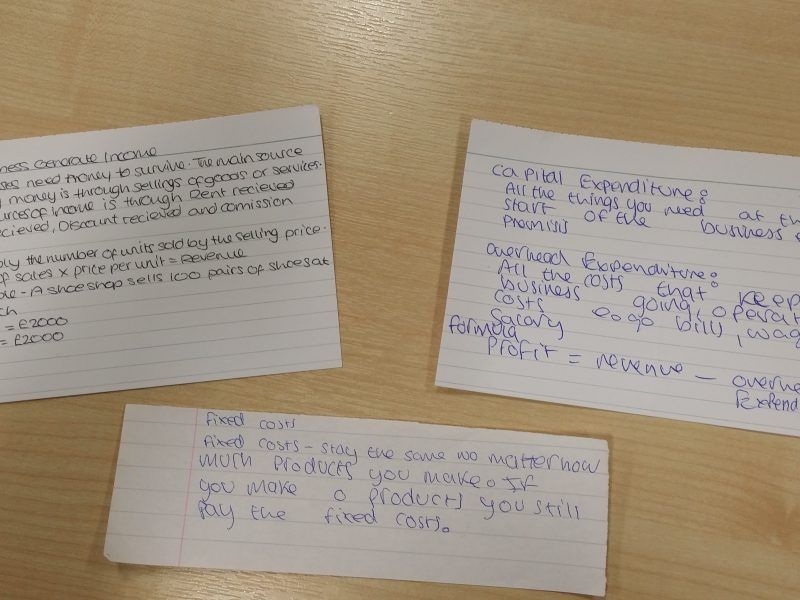 ness Generate Income
ses need money to survive. The main source
money is through sellings of goods or services.
urces of income is through Rent recieved
ecieved, Discount recieved and comission
ply the number of units sold by the selling price.
f sales x price per unit = Revenue
ple - A shoe shop sells 100 pairs of shoes at
ch
= £2000
= £2000
capital Expenditure:
All the things you need at th
start of the business e
premisis
overhead Expenditure:
All the costs that keep
business going, operat
costs e.g. bills, wag
salary
formula
Profit = revenue - overhe
Expend
fixed costs
fixed costs - stay the same no matter how
much products you make. If
you make 0 products you still
pay the fixed costs.